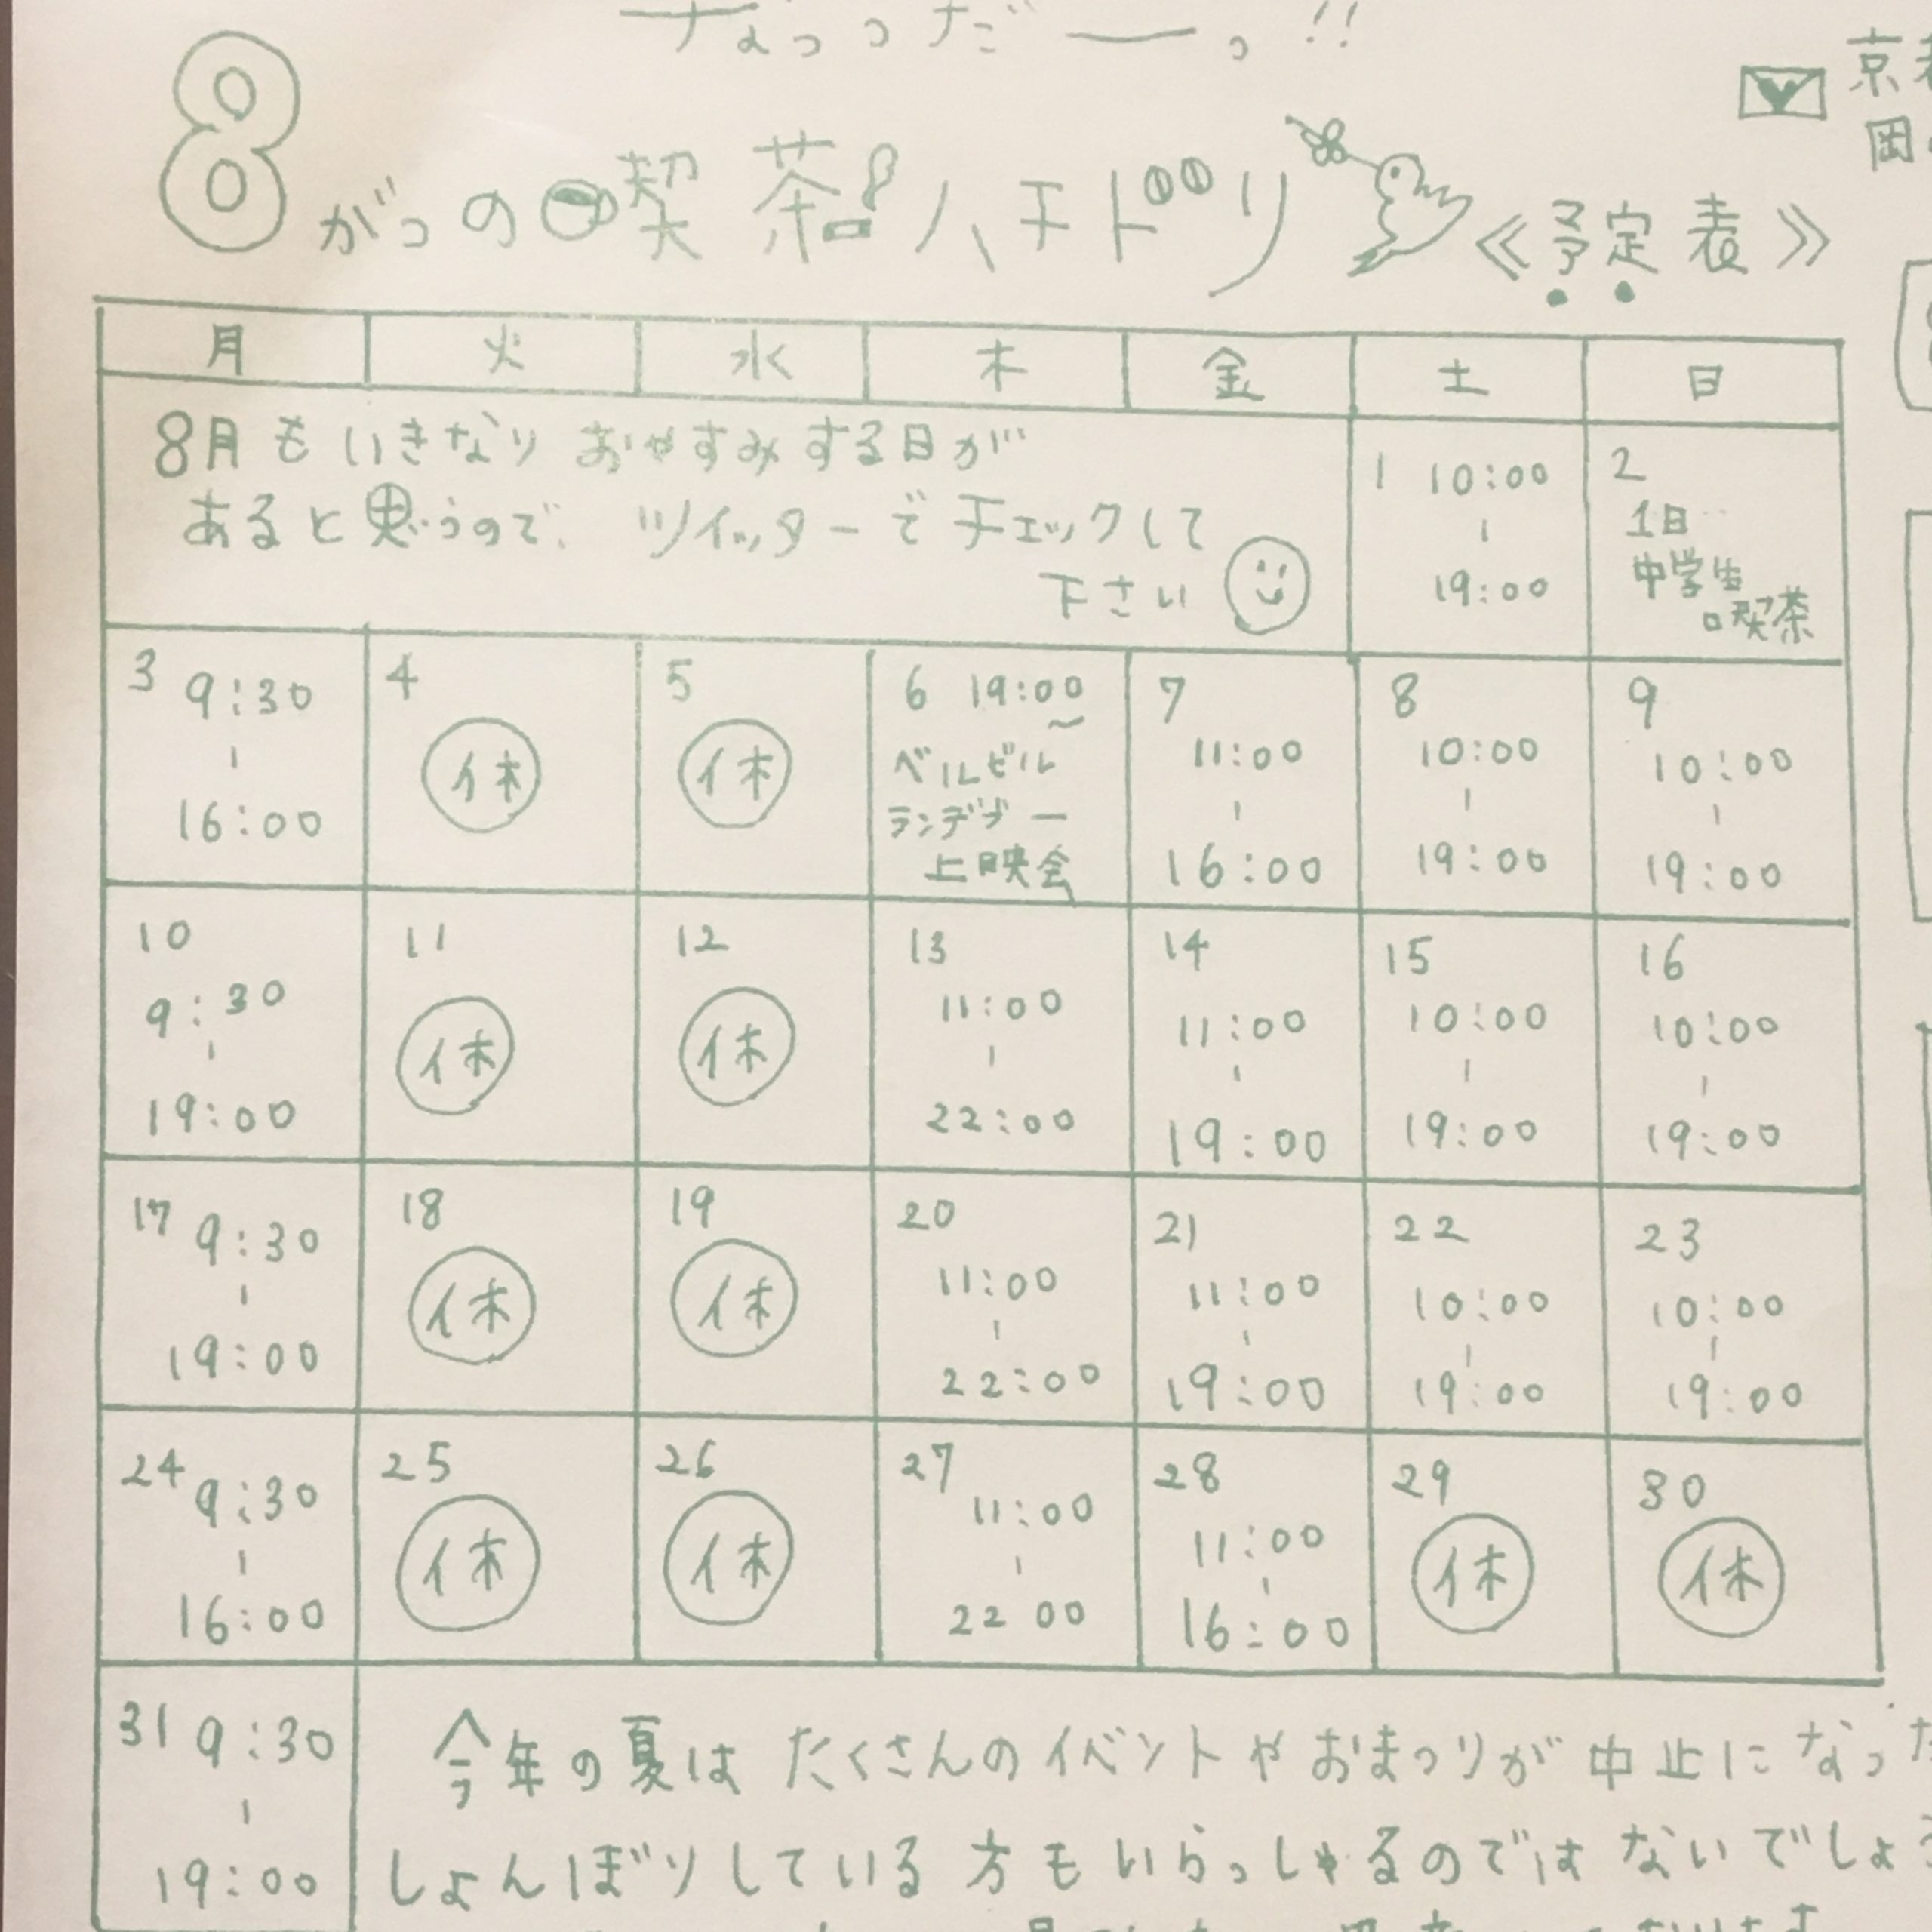 なっつだーっ!!
8がつの喫茶ハチドリ
≪予定表≫
月 火 水 木 金 土 日
8月もいきなりおやすみする日が
あると思うので、ツイッターでチェックして
下さい
1 10:00
-
19:00
2
1日
中学生
喫茶
3 9:30
-
16:00
4
休
5
休
6 19:00
~
ベルビル
ランデブー
上映会
7
11:00
-
16:00
8
10:00
-
19:00
9
10:00
-
19:00
10
9:30
-
19:00
11
休
12
休
13
11:00
-
22:00
14
11:00
-
19:00
15
10:00
-
19:00
16
10:00
-
19:00
17 9:30
-
19:00
18
休
19
休
20
11:00
-
22:00
21
11:00
-
19:00
22
10:00
-
19:00
23
10:00
-
19:00
24 9:30
-
16:00
25
休
26
休
27
11:00
-
22 00
28
11:00
-
16:00
29
休
30
休
31 9:30
-
19:00
今年の夏はたくさんのイベントやおまつりが中止になった
しょんぼりしている方もいらっしゃるのではないでしょう
京都
岡